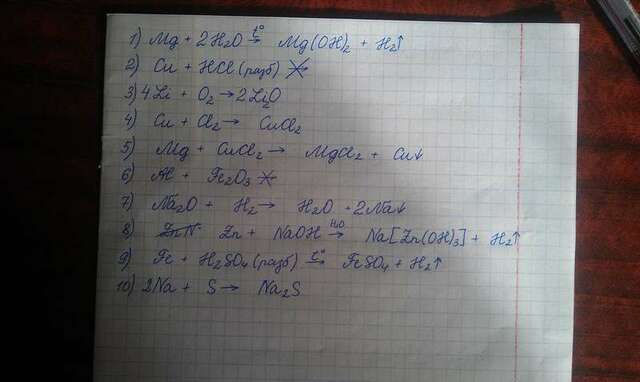 1) Mg + 2H₂O →^t° Mg(OH)₂ + H₂↑
2) Cu + HCl (разб) ↛
3) 4Li + O₂ → 2Li₂O
4) Cu + Cl₂ → CuCl₂
5) Mg + CuCl₂ → MgCl₂ + Cu↓
6) Al + Fe₂O₃ ↛
7) Na₂O + H₂ → H₂O + 2Na↓
8) Zn + NaOH →^H₂O Na[Zn(OH)₃] + H₂↑
9) Fe + H₂SO₄ (разб) →^t° FeSO₄ + H₂↑
10) 2Na + S → Na₂S